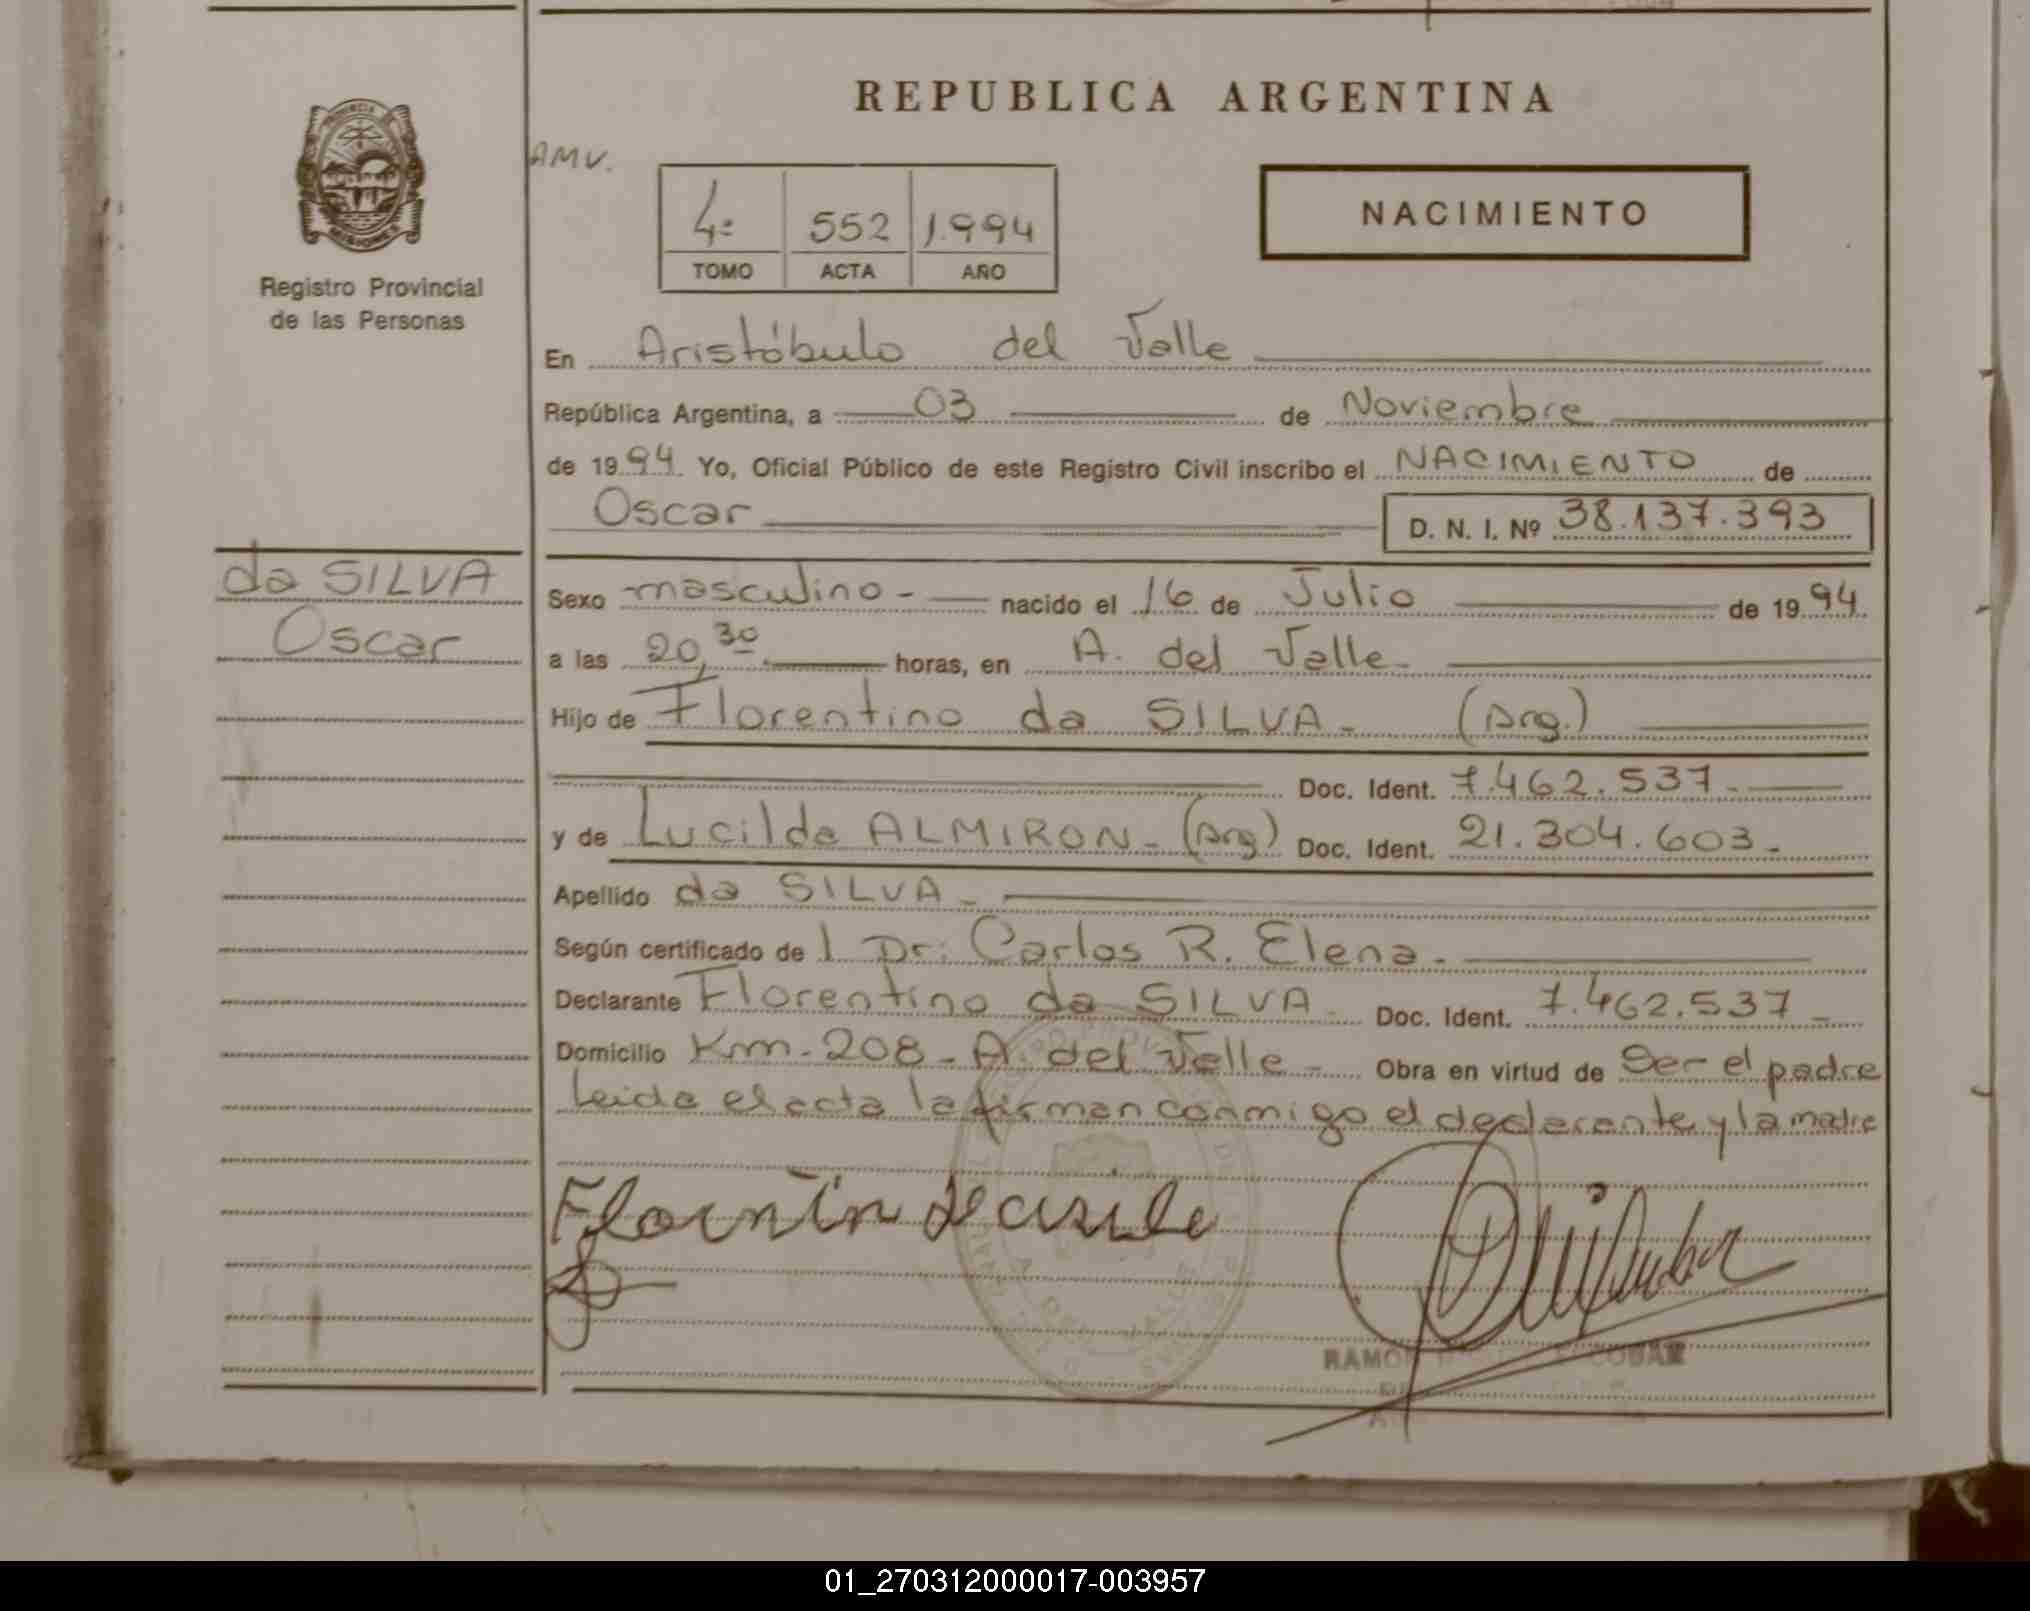 REPUBLICA ARGENTINA
AMV.
4º 552 1.994
TOMO ACTA AÑO
NACIMIENTO
PROVINCIA
MISIONES
Registro Provincial
de las Personas
En Aristóbulo del Valle
República Argentina, a 03 de Noviembre
de 1994 Yo, Oficial Público de este Registro Civil inscribo el NACIMIENTO de
Oscar D. N. I. Nº 38.137.393
da SILVA
Oscar
Sexo masculino - nacido el 16 de Julio de 1994
a las 20,30 horas, en A. del Valle
Hijo de Florentino da SILVA - (Arg.)
Doc. Ident. 7.462.537-
y de Lucilda ALMIRON - (Arg) Doc. Ident. 21.304.603.-
Apellido da SILVA -
Según certificado de l Dr: Carlos R. Elena.
Declarante Florentino da SILVA - Doc. Ident. 7.462.537 -
Domicilio Km-208-A. del Valle - Obra en virtud de Ser el padre
Leida el acta la firman conmigo el declarante y la madre
RAMON ESCOBAR
01_270312000017-003957